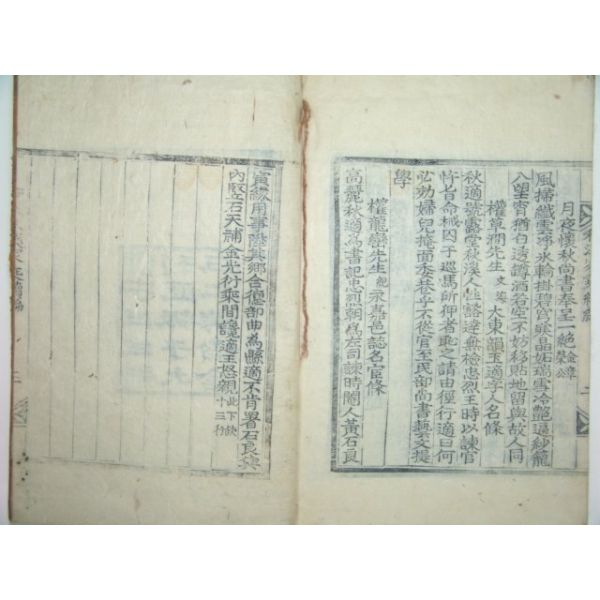 月夜懷秋尚書奉呈一絶
風掃纖雲淨氷輪掛碧宮蟾晶妬瑞雪冷艶逼紗籠
八望宵猶白透罇酒若空不妨移貼地留與故人同
權草澗先生文海大東韻玉適字人名條
秋適號露堂秋溪人性豁達無檢忠烈王時以諫官
忤旨命械因子巡馬所仰者耻之請由徑行適曰何
弘幼婦兒掩面友巷乎不從官至民部尚書藝文提
學
權龍巒先生 永嘉邑誌名宦條
高麗秋適為書記忠烈朝為左司諫時閹人黃石良
寅緣用事陞其鄉合德部曲為縣適不肯署石良與
內竪石天補金光衍乘間讒適王怒親 此下缺十三行